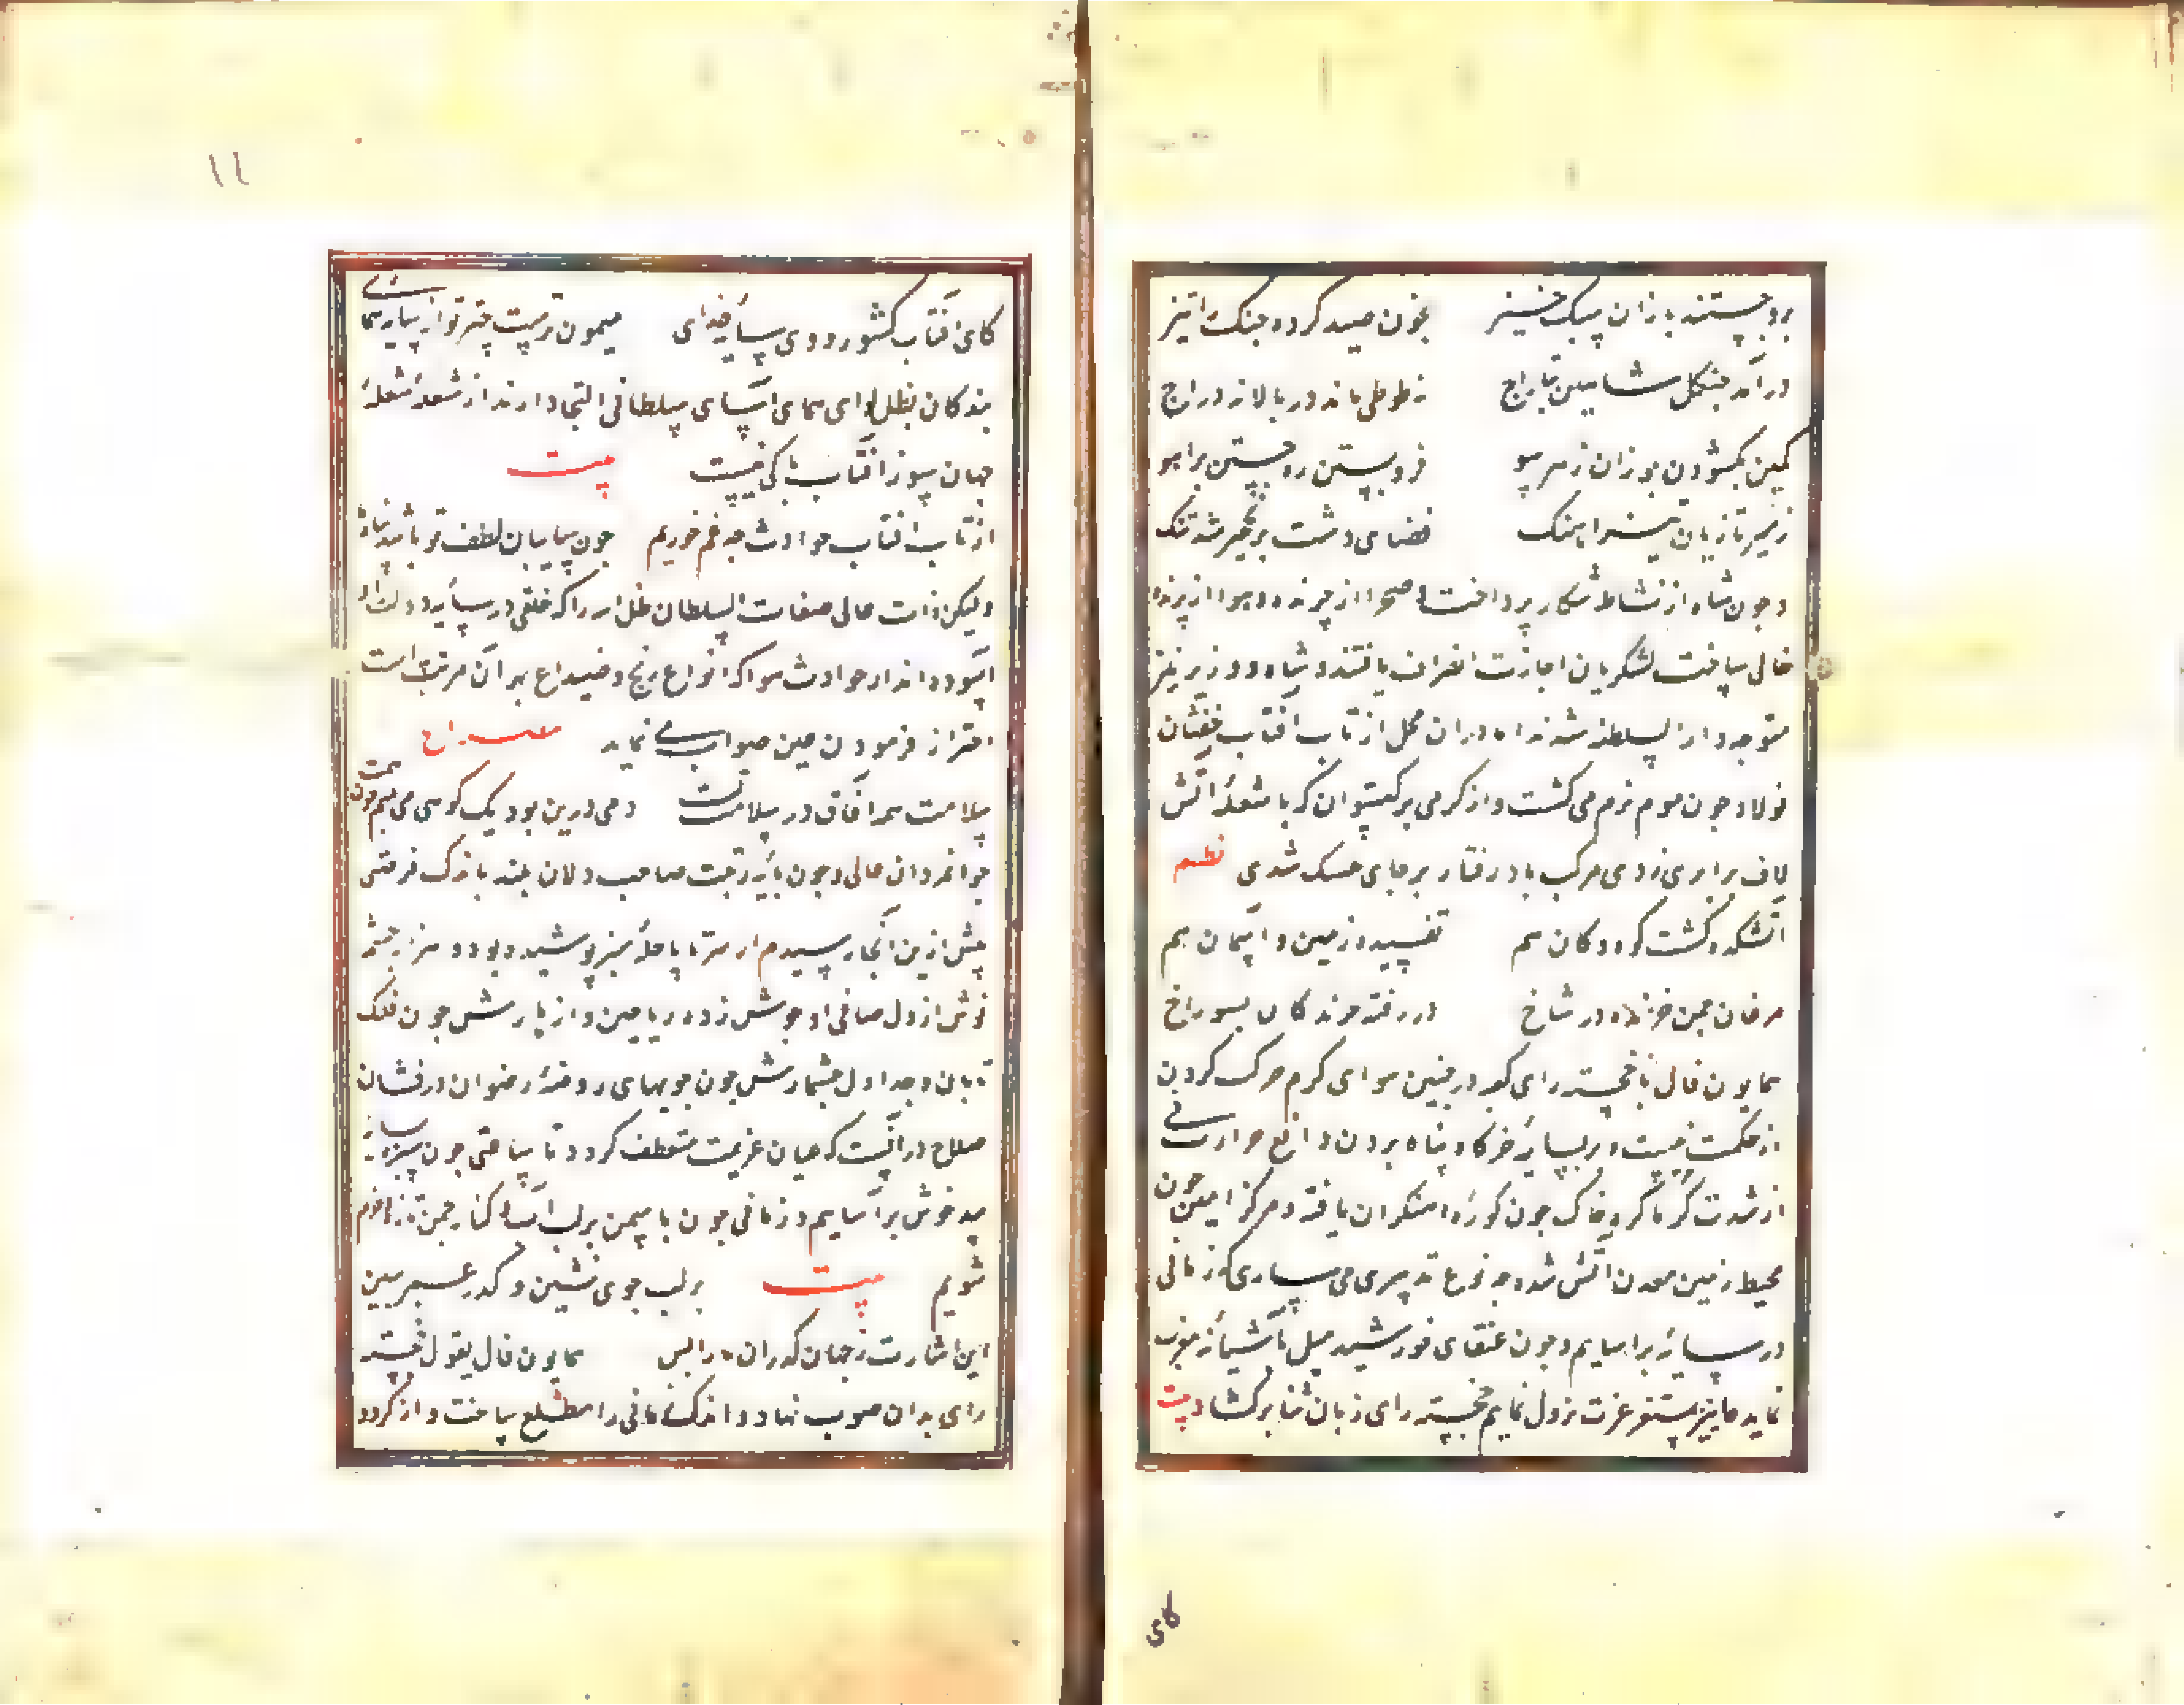 بروجستند بازان سبک خیز بخون صید کرده جنک را تیز
درآمد جنکل شاهین بتاراج نه طوطی ماند در بالا نه دراج
کمین بکشودن یوزان ز هر سو فرو بستن ره جستن بر آهو
ز شیر تازیان تیز آهنک فضای دشت بر نخجیر شد تنک
و جون شاه از نشاط شکار بپرداخت و صحرا از چرنده و هوا از پرنده
خالی ساخت لشکریان اجازت انصراف یافتند و شاه و وزیر نیز
متوجه دار السلطنه شدند اما در آن محل از تاب آفتاب خفتان
فولاد جون موم نرم می کشت و از کرمی برکستوان که با شعله آتش
لاف برابری زدی مرکب باد رفتار بر جای خشک شدی نظم
آتشکده کشت کوه و کان هم تفسیده زمین و آسمان هم
مرغان چمن خزنده در شاخ در رفته چرندکان بسوراخ
همایون فال با خجسته رای کفت که در جنین هوای کرم حرکت کردن
از حکمت نیست و در سایه خرکاه پناه بردن دافع حرارت نی
از شدت کرما کره خاک جون کوره آهنکران تافته و مرکز زمین جون
محیط زمین معدن آتش شده جه نوع تدبیری می سازی که زمانی
در سایه بر آساییم و جون عنقای خورشید میل بآشیانه مغرب
نماید ما نیز بمستقر عزت نزول نماییم خجسته رای زبان ثنا برکشاد بیت
کای
۱۱
کای آفتاب کشور و وی سایه خدای میمون ترست چتر تو از سایه همای
بندکان بظل لوای همای آسای سلطانی التجا دارند از شعشعه شعله
جهان سوز آفتاب باکی نیست بیت
از تاب آفتاب حوادث جه غم خوریم جون سایبان لطف تو باشد پناه ما
ولیکن ذات عالی صفات السلطان ظل الله را که خلقی در سایه دولت او
آسوده اند از حوادث هوا که انواع رنج و صداع بر آن مرتبست
احتراز فرمودن عین صواب می نماید مصراع
سلامت همه آفاق در سلامت تست دمی درین بود یک کوهی می بینم جون همت
جوانمردان عالی و جون پایه رتبت صاحب دلان بلند باندک فرصتی
پیش ازین آنجا رسیدم از سر تا پا حله سبز پوشیده بود و هزار چشمه
خوش از دل صافی او جوش زده ریاحین و ازهارش جون فلک
تابان و جداول چشمه سارش جون جویهای روضه رضوان درفشان
صلاح در آنست که عنان عزیمت منعطف کردد تا ساعتی جون سبزه در سایه
بید خوش برآساییم و زمانی جون یاسمن بر لب آب و کنار چمن تازه و خرم
شویم بیت بر لب جوی نشین و کذر عمر ببین
این اشارت ز جهان کذران ما را بس همایون فال بقول خجسته
رای بدان صوب نهاد و اندک زمانی را منقطع ساخت و از کرد